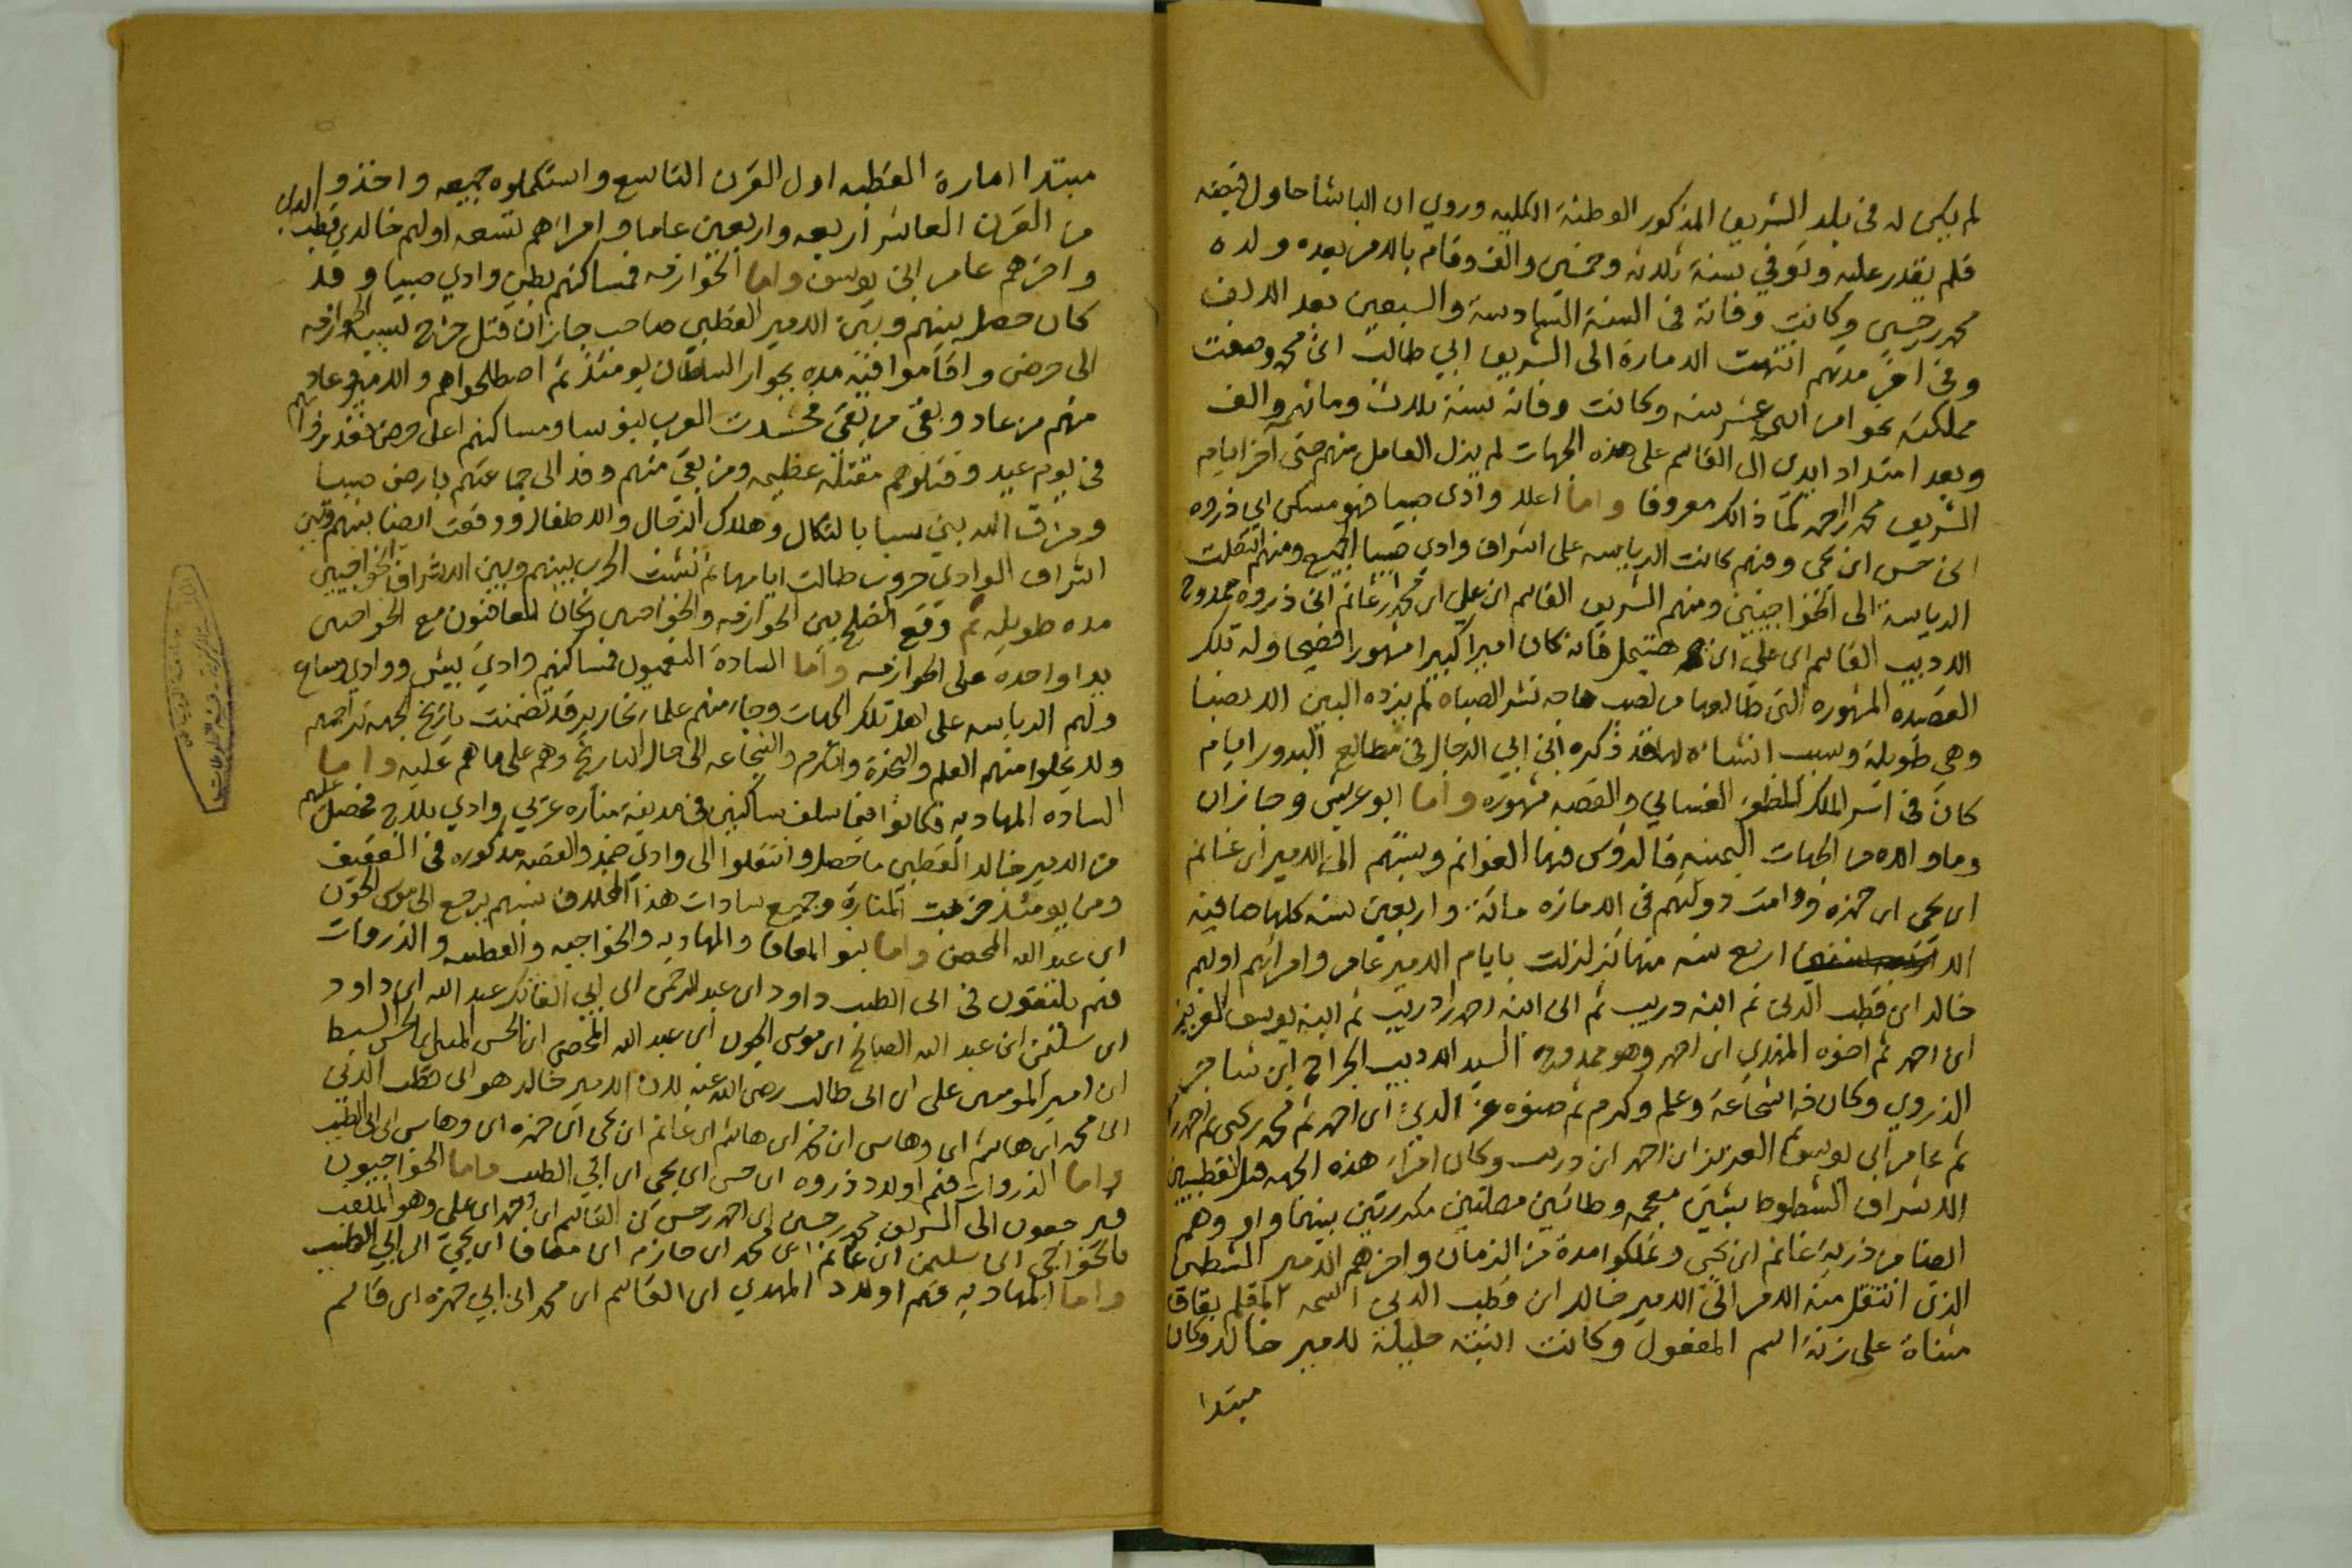 لم يكن له في بلد الشريف المذكور الوطنة الكليه وروي ان الباشا حاول قبضه
فلم يقدر عليه وتوفي سنة ثلاثه وخمسين والف وقام بالامر بعده ولده
محمد حسين وكانت وفاته في السنة السادسة والسبعين بعد الالف
وفي اخر مدتهم انتهت الامارة الى الشريف ابي طالب ابن محمد وصفت
مملكته نحوا من اثنى عشر سنه وكانت وفاته سنة ثلاث ومائه والف
وبعد امتداد ايدى ال القاسم على هذه الجهات لم يزل العامل منهم حتى اخر ايام
الشريف محمد احمد كما ذالك معروفا واما اعلا وادى صبيا فهو مسكن ابي ذروه
ابن حسن ابن يحيى وفيهم كانت الرياسه على اشراف وادي صبيا الجميع ومنهم انتقلت
الرياسة الى الخواجيين ومنهم الشريف القاسم ابن علي ابن محمد ابن غانم ابن ذروه ممدوح
الاديب القاسم ابن علي ابن هتيمل فانه كان اميرا كبيرا مشهورا فصيحا وله تلك
القصيده المشهوره التي طالعها من لصب هاجه نشر الصباه لم يزده البين الا نصبا
وهي طويلة وسبب انشاءه لها قد ذكره ابن ابي الرجال في مطالع البدور ايام
كان في اسر الملك المظفر الغساني والقصه مشهوره واما ابو عريش وجازان
وما والاه من الجهات اليمنيه فالرؤس فيها الغوانم ونسبتهم الى الامير ابن غانم
ابن يحيى ابن حمزه ودامت دولتهم في الامازه مائة واربعين سنه كلها صافيه
الا اربع سنه منها تزلزلت بايام الامير عامر وامرائهم اولهم
خالد ابن قطب الدين ثم ابنه دريب ثم الى ابنه احمد ابن دريب ثم ابنه يوسف العزيز
ابن احمد ثم اخوه المهدي ابن احمد وهو ممدوح السيد الاديب الجراح ابن شاجر
الذروي وكان فيه شجاعة وعلم وكرم ثم صنوه عز الدين ابن احمد ثم محمد يحيى ثم احمد
ثم عامر ابن يوسف العزيز ابن احمد ابن دريب وكان امراء هذه الجهه قبل القطبيين
الاشراف الشطوط بشين معجمه وطائين مهملتين مكررتين بينهما واو وهم
ايضا من ذرية غانم ابن يحيى وتملكوا مدة من الزمان واخرهم الامير الشطي
الذي انتقل منه الامر الى الامير خالد ابن قطب الدين اسمه المقلم بقاف
مثناة على زنة اسم المفعول وكانت ابنته حليلة للامير خالد وكان
مبتدا
مبتدا امارة القطبه اول القرن التاسع واستكملوه جميعه واخذوا
من القرن العاشر اربعه واربعين عاما وامراهم تسعه اولهم خالد بن قطب الدين
واخرهم عامر ابن يوسف واما الخوازمه فمساكنهم بطن وادي صبيا وقد
كان حصل بينهم وبين الامير القطبي صاحب جازان قتل خرج لسببه الخوازمه
الى حرض واقاموا فيه مده بجوار السلطان يومئذ ثم اصطلحوا هم والامير وعاد
منهم من عاد وبقى من بقى فحشدت العرب بنو نسا ومساكنهم اعلى حرض فغدروا بهم
في يوم عيد وقتلوهم مقتلة عظيمه ومن بقى منهم وفد الى جماعتهم بارض صبيا
ومزق الله بني نسبا بالنكال وهلاك الرجال والاطفال ووقعت ايضا بينهم وبين
اشراف الوادي حروب طالت ايامها ثم نشبت الحرب بينهم وبين الاشراف الخواجيين
مده طويله ثم وقع الصلح بين الخوازمه والخواجيين وكان المعافيون مع الخواجيين
يدا واحده على الخوازمه واما السادة النعميون فمساكنهم وادي بيش ووادي وساع
ولهم الرياسه على اهل تلك الجهات وجاء منهم علماء نحارير قد تضمنت تاريخ الجهه تراجمهم
ولا يخلوا منهم العلم والنجدة والكرم والشجاعه الى حال التاريخ وهم على ما هم عليه واما
الساده المهاديه فكانوا فيما سلف ساكنين في مدينة مناره غربي وادي بلاج فحصل عليهم
من الامير خالد القطبي ما حصل وانتقلوا الى وادي ضمد والقصه مذكوره في العقيق
ومن يومئذ خربت المنارة وجميع سادات هذا المخلاف نسبهم يرجع الى موسى الجون
ابن عبد الله المحض واما بنو المعافا والمهاديه والخواجيه والقطبيه والذروات
فهم يلتقون في ابي الطيب داود ابن عبد الرحمن ابن ابي الفاتك عبد الله ابن داود
ابن سليمن ابن عبد الله الصالح ابن موسى الجون ابن عبد الله المحض ابن الحسن المثنى ابن الحسن السبط
ابن امير المومنين علي ابن ابي طالب رضي الله عنه لان الامير خالد هو ابن قطب الدين
ابن محمد ابن هاشم ابن وهاس ابن محمد ابن هاشم ابن غانم ابن يحيى ابن حمزه ابن وهاس ابن ابي الطيب
واما الذروات فهم اولاد ذروه ابن حسن ابن يحيى ابن ابي الطيب واما الخواجيون
فيرجعون الى الشريف محمد حسين ابن احمد حسن ابن القاسم ابن احمد ابن علي وهو الملقب
بالخواجي ابن سليمن ابن غانم ابن محمد ابن حازم ابن معافا ابن يحيى ابن ابي الطيب
واما المهاديه فهم اولاد المهدي ابن القاسم ابن محمد ابن ابي حمزه ابن قاسم